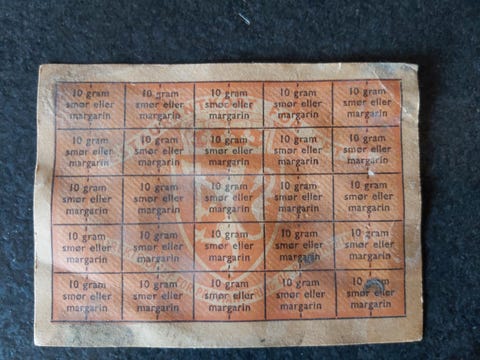 10 gram 10 gram 10 gram 10 gram 10 gram
smør eller smør eller smør eller smør eller smør eller
margarin margarin margarin margarin margarin
10 gram 10 gram 10 gram 10 gram 10 gram
smør eller smør eller smør eller smør eller smør eller
margarin margarin margarin margarin margarin
10 gram 10 gram 10 gram 10 gram 10 gram
smør eller smør eller smør eller smør eller smør eller
margarin margarin margarin margarin margarin
10 gram 10 gram 10 gram 10 gram 10 gram
smør eller smør eller smør eller smør eller smør eller
margarin margarin margarin margarin margarin
10 gram 10 gram 10 gram 10 gram 10 gram
smør eller smør eller smør eller smør eller smør eller
margarin margarin margarin margarin margarin